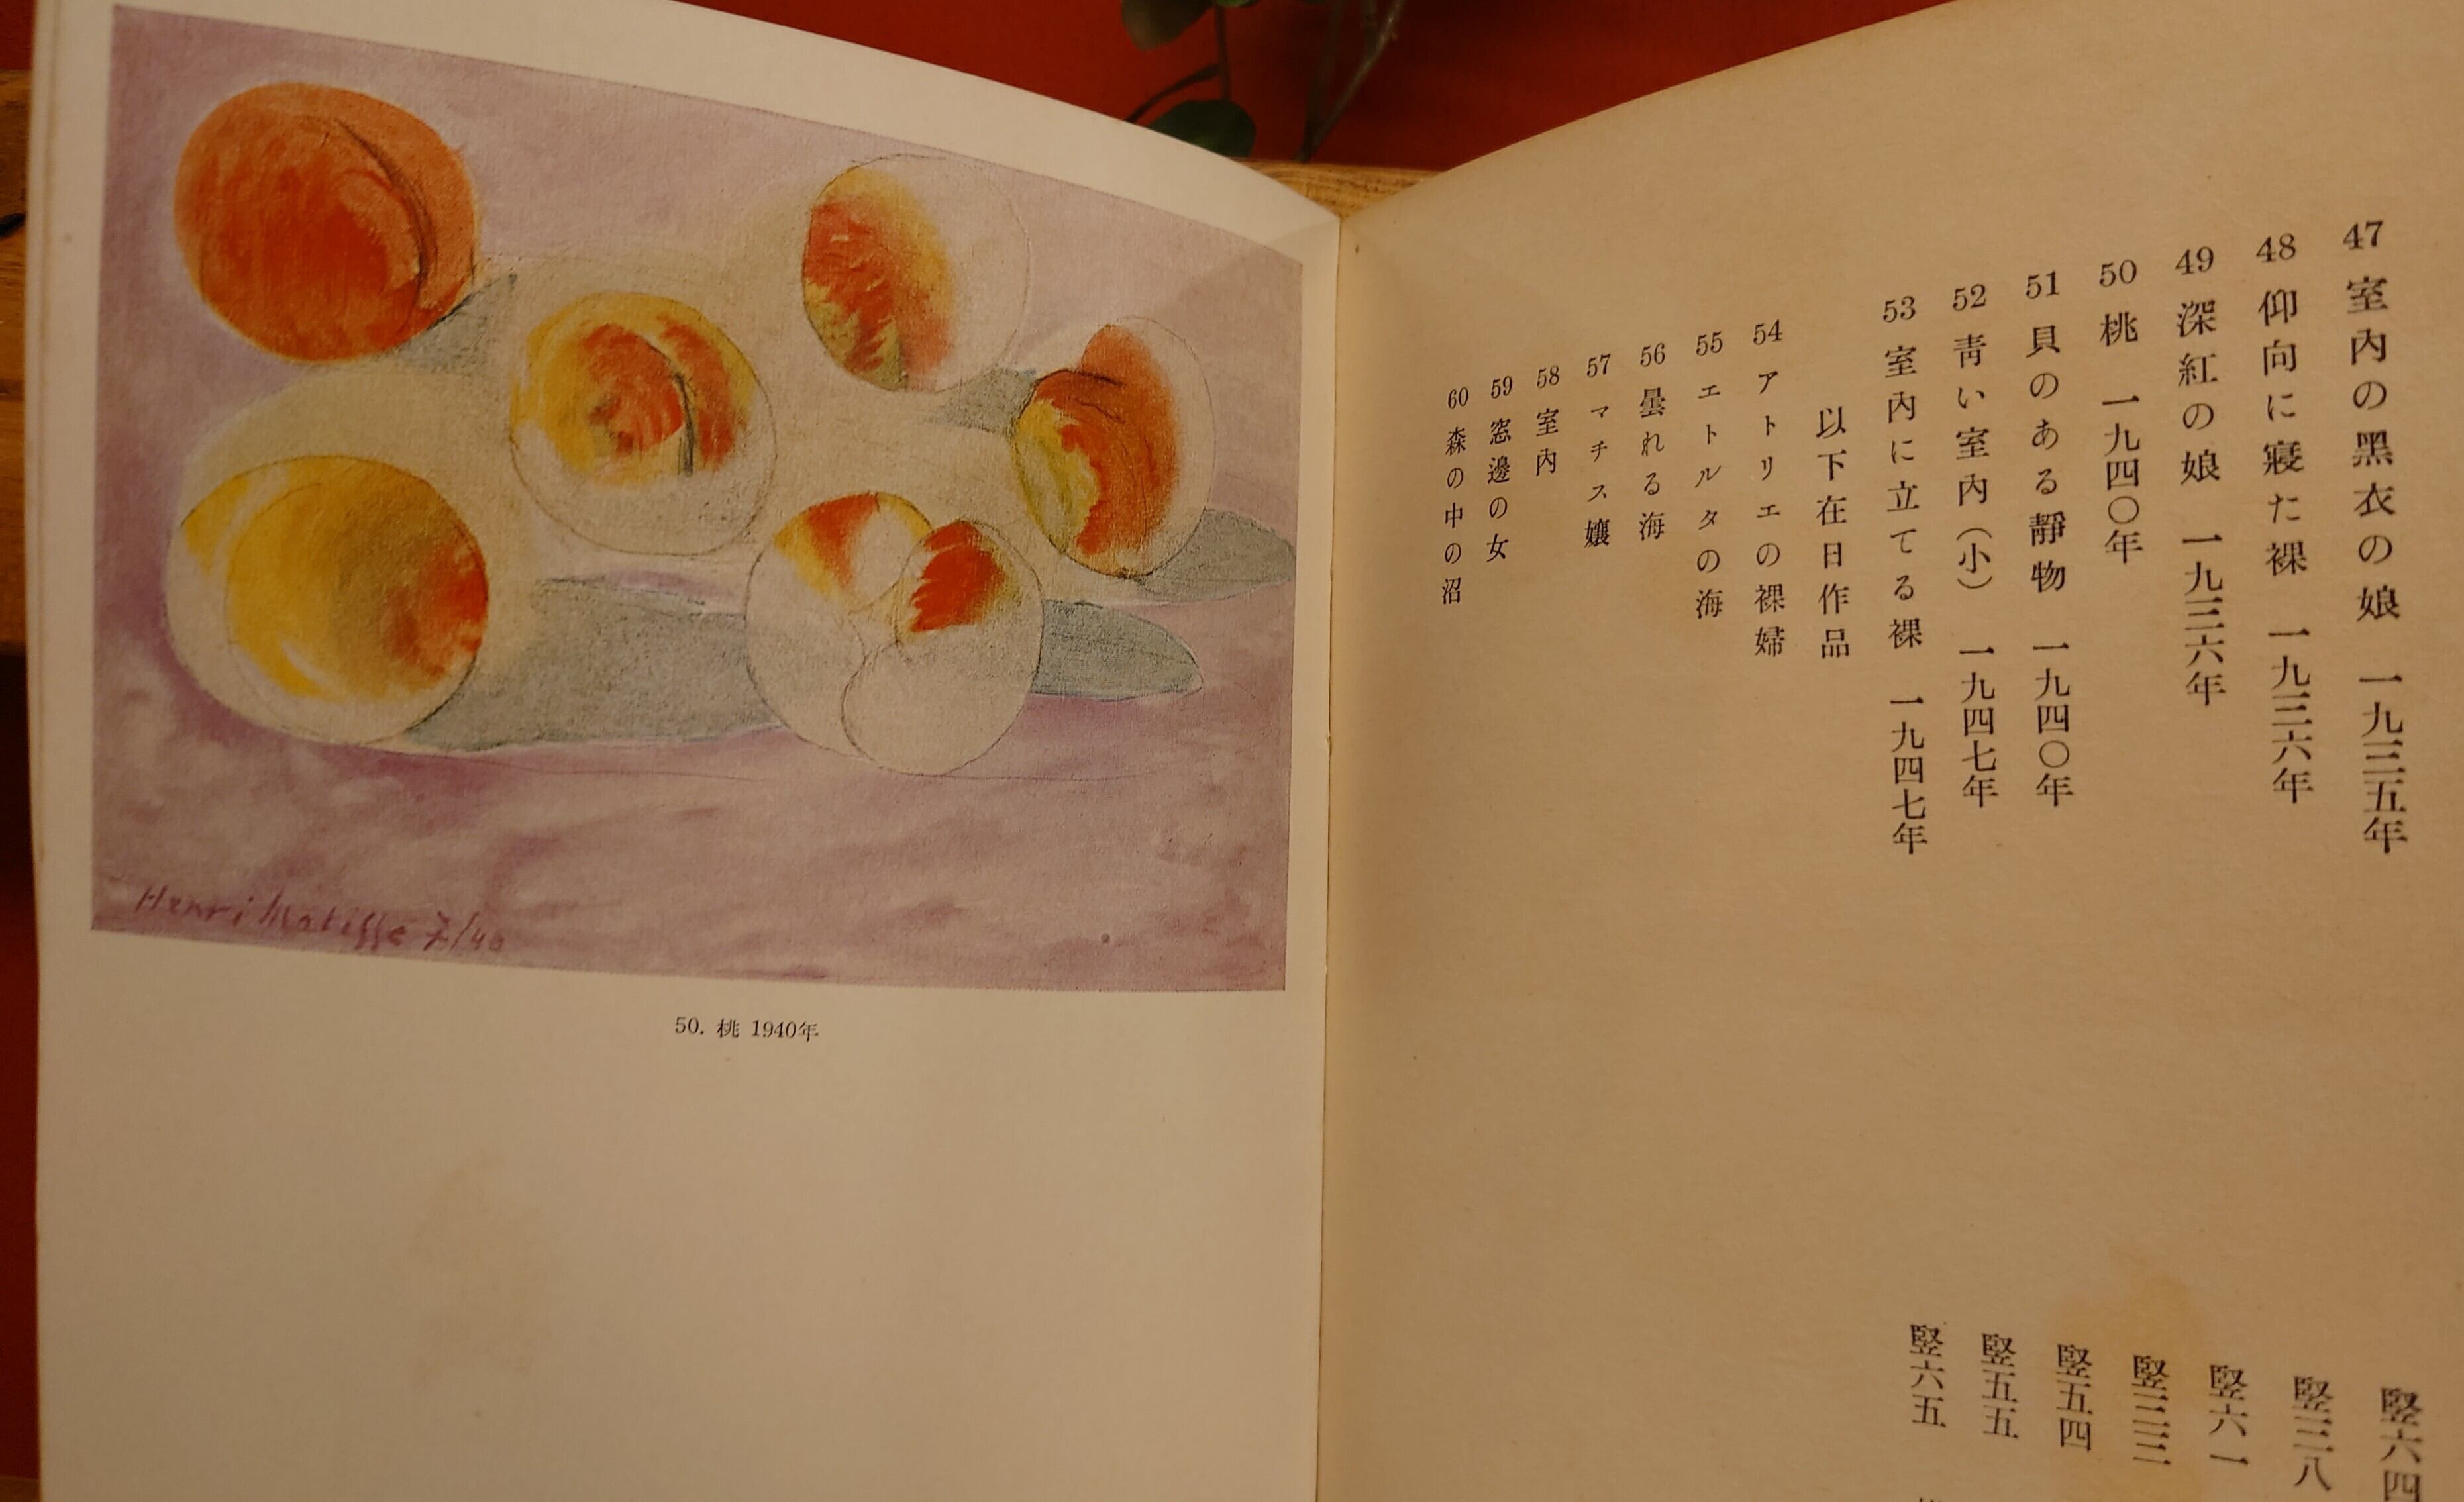 Henri Matisse 7/40
50. 桃 1940年
47 室內の黑衣の娘 一九三五年
48 仰向に寢た裸 一九三六年
49 深紅の娘 一九三六年
50 桃 一九四〇年
51 貝のある靜物 一九四〇年
52 靑い室內（小） 一九四七年
53 室內に立てる裸 一九四七年
以下在日作品
54 アトリエの裸婦
55 エトルタの海
56 曇れる海
57 マチス孃
58 室內
59 窓邊の女
60 森の中の沼
竪六四
竪三八
竪六一
竪三三
竪五四
竪五五
竪六五